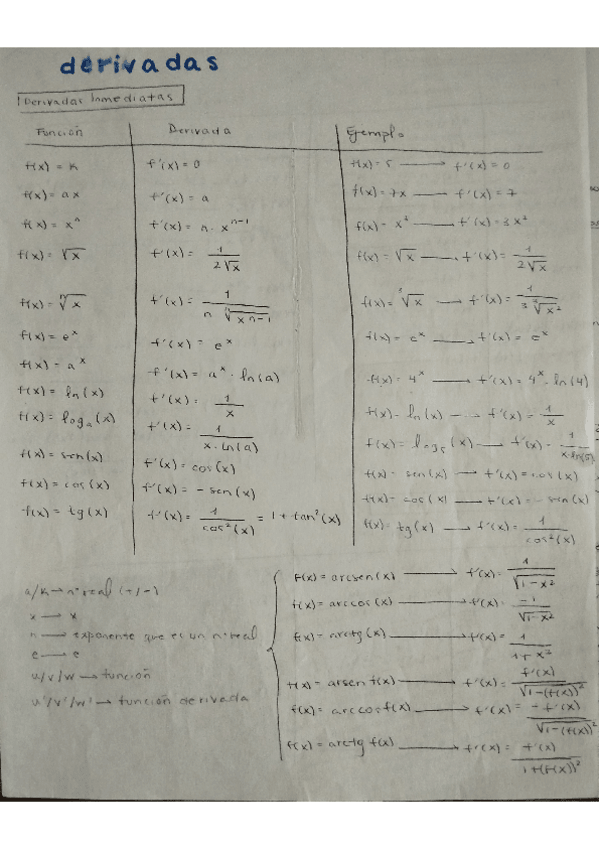 derivadas
Derivadas Inmediatas
Función Derivada Ejemplo
f(x) = k f'(x) = 0 f(x) = 5 → f'(x) = 0
f(x) = ax f'(x) = a f(x) = 7x → f'(x) = 7
f(x) = xⁿ f'(x) = n · xⁿ⁻¹ f(x) = x³ → f'(x) = 3x²
f(x) = √x f'(x) = 1/(2√x) f(x) = √x → f'(x) = 1/(2√x)
f(x) = ⁿ√x f'(x) = 1/(n ⁿ√(xⁿ⁻¹)) f(x) = ³√x → f'(x) = 1/(3 ³√x²)
f(x) = eˣ f'(x) = eˣ f(x) = eˣ → f'(x) = eˣ
f(x) = aˣ f'(x) = aˣ · ln(a) f(x) = 4ˣ → f'(x) = 4ˣ · ln(4)
f(x) = ln(x) f'(x) = 1/x f(x) = ln(x) → f'(x) = 1/x
f(x) = logₐ(x) f'(x) = 1/(x · ln(a)) f(x) = log₅(x) → f'(x) = 1/(x·ln(5))
f(x) = sen(x) f'(x) = cos(x) f(x) = sen(x) → f'(x) = cos(x)
f(x) = cos(x) f'(x) = - sen(x) f(x) = cos(x) → f'(x) = - sen(x)
f(x) = tg(x) f'(x) = 1/cos²(x) = 1 + tan²(x) f(x) = tg(x) → f'(x) = 1/cos²(x)
a/k → nº real (+/-)
x → x
n → exponente que es un nº real
e → e
u/v/w → función
u'/v'/w' → función derivada
f(x) = arcsen(x) → f'(x) = 1/√(1-x²)
f(x) = arccos(x) → f'(x) = -1/√(1-x²)
f(x) = arctg(x) → f'(x) = 1/(1+x²)
f(x) = arsen f(x) → f'(x) = f'(x)/√(1-(f(x))²)
f(x) = arccos f(x) → f'(x) = -f'(x)/√(1-(f(x))²)
f(x) = arctg f(x) → f'(x) = f'(x)/(1+(f(x))²)